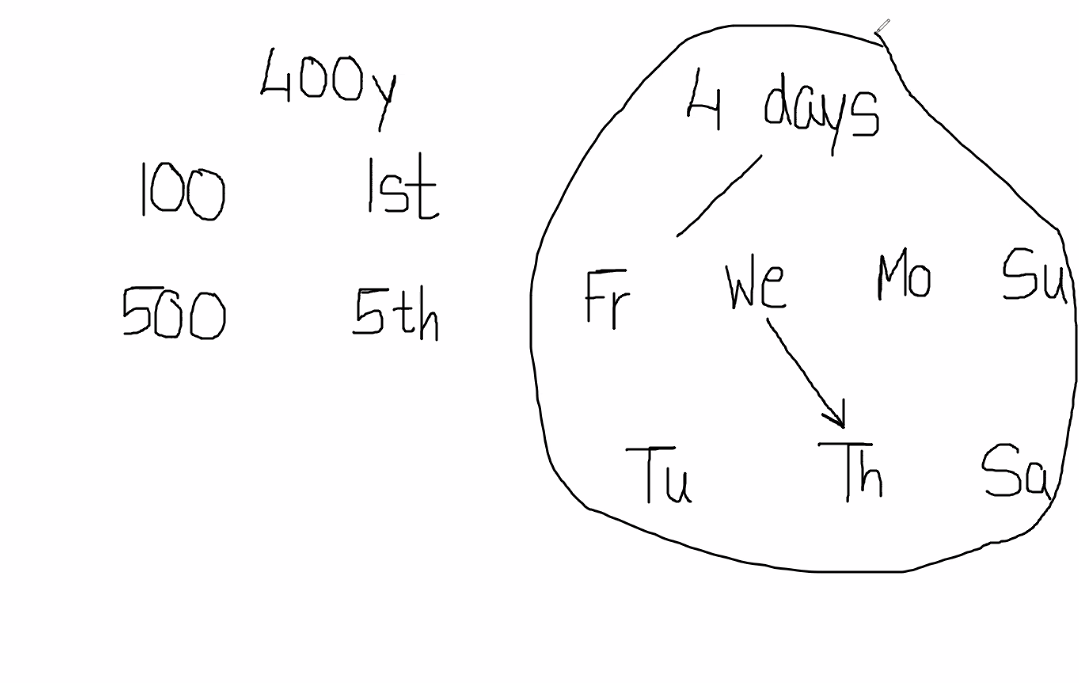 400y
100 1st
500 5th
4 days
Fr We Mo Su
Tu Th Sa